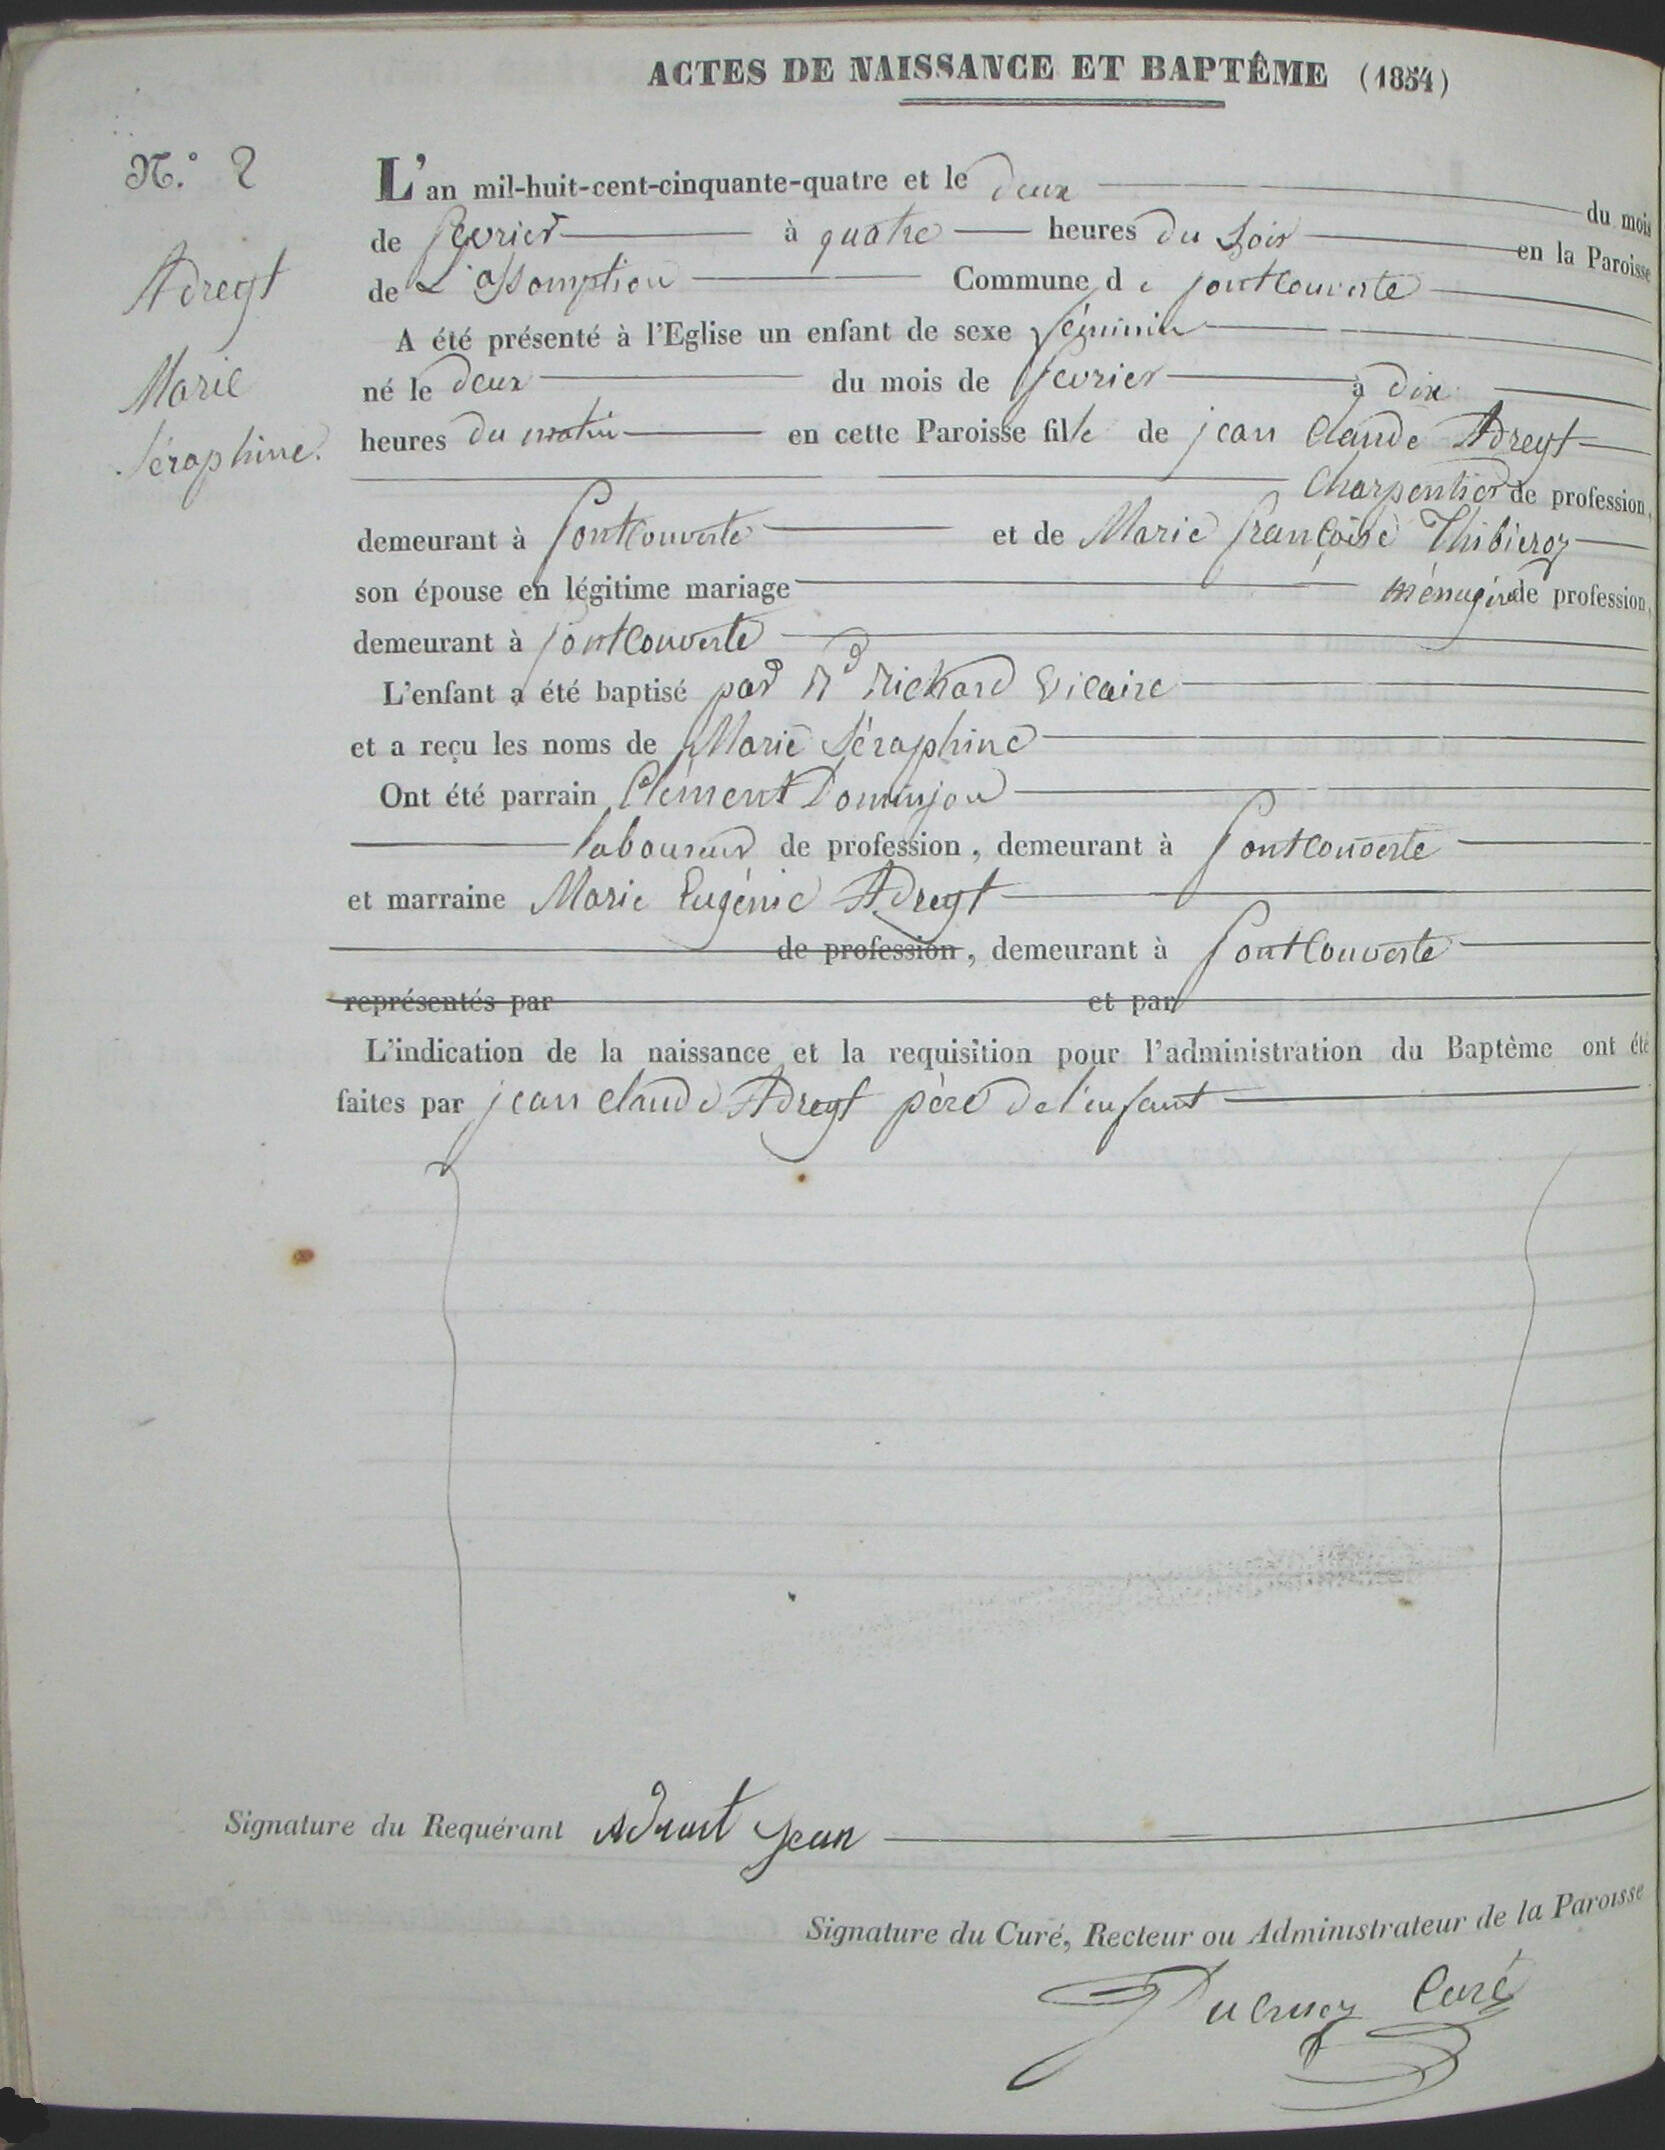 ACTES DE NAISSANCE ET BAPTÊME (1854)
N.° 2
Adreyt
Marie
Séraphine.
L'an mil-huit-cent-cinquante-quatre et le deux du mois
de fevrier à quatre heures du soir en la Paroisse
de L'assomption Commune de fontcouverte
A été présenté à l'Eglise un enfant de sexe féminin
né le deux du mois de fevrier à dix
heures du matin en cette Paroisse fille de jean Claude Adreyt
Charpentier de profession,
demeurant à fontcouverte et de Marie françoise Thibieroz
son épouse en légitime mariage ménagère de profession,
demeurant à fontcouverte
L'enfant a été baptisé par Rd Rickard Vicaire
et a reçu les noms de Marie Séraphine
Ont été parrain Clément Dominjon
laboureur de profession, demeurant à fontcouverte
et marraine Marie Eugénie Adreyt
de profession, demeurant à fontcouverte
représentés par et par
L'indication de la naissance et la requisition pour l'administration du Baptême ont été
faites par jean claude Adreyt père de l'enfant
Signature du Requérant Adrait Jean
Signature du Curé, Recteur ou Administrateur de la Paroisse
Curé